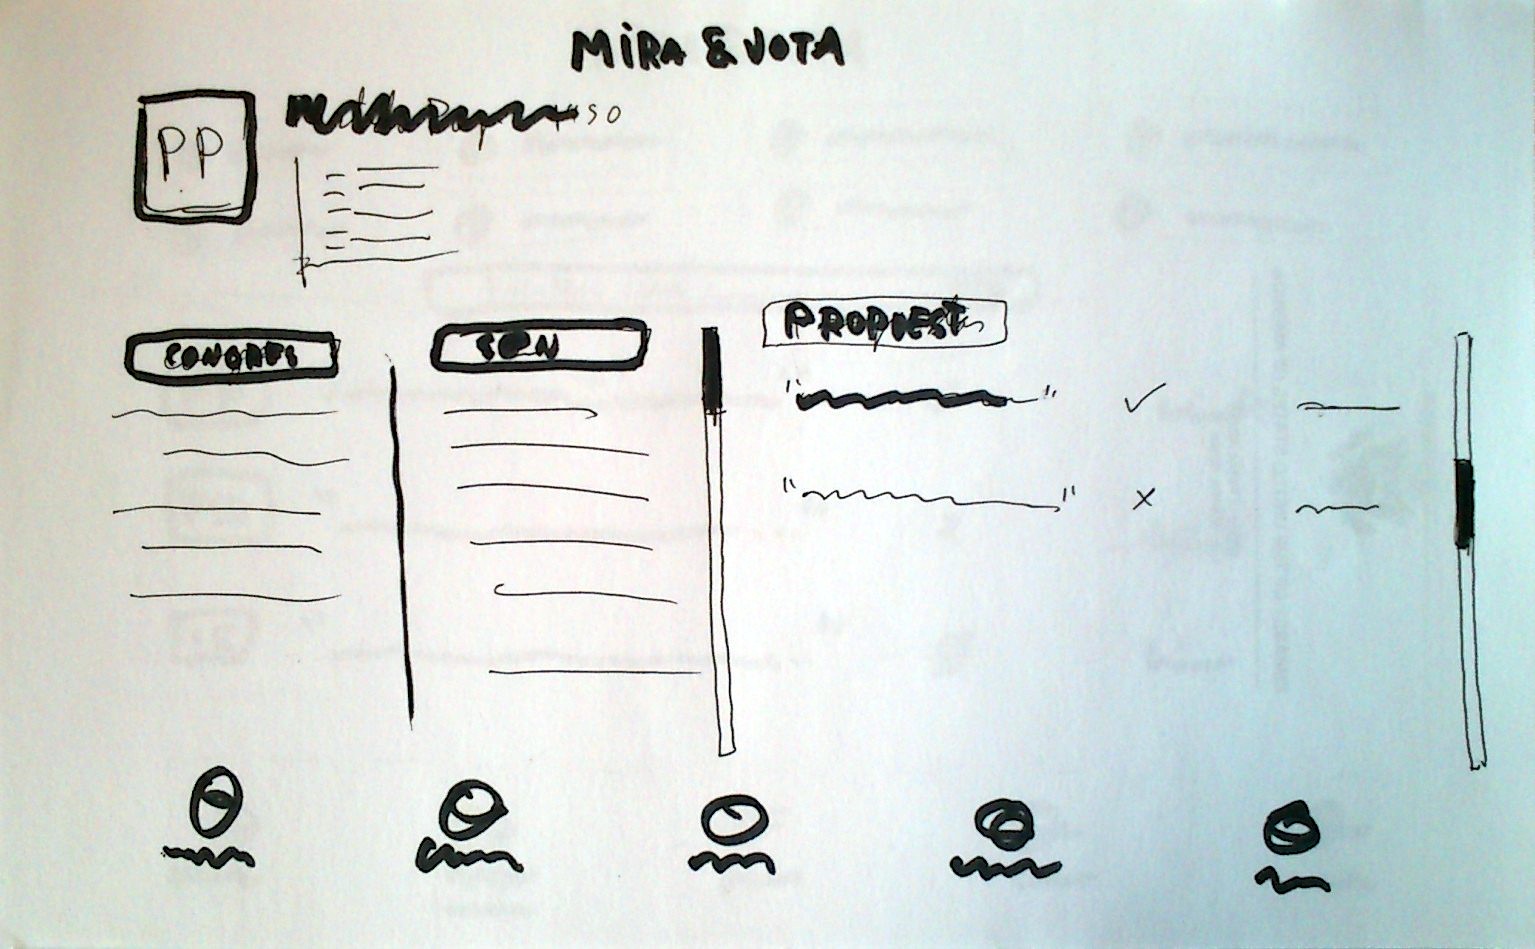 MIRA & VOTA
PP
CONGRES
SEN
PROPUESTAS